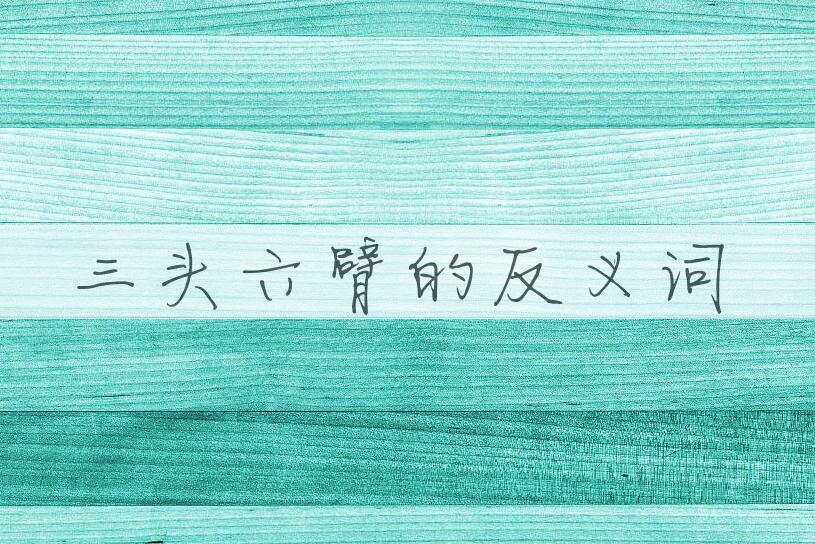 三头六臂的反义词